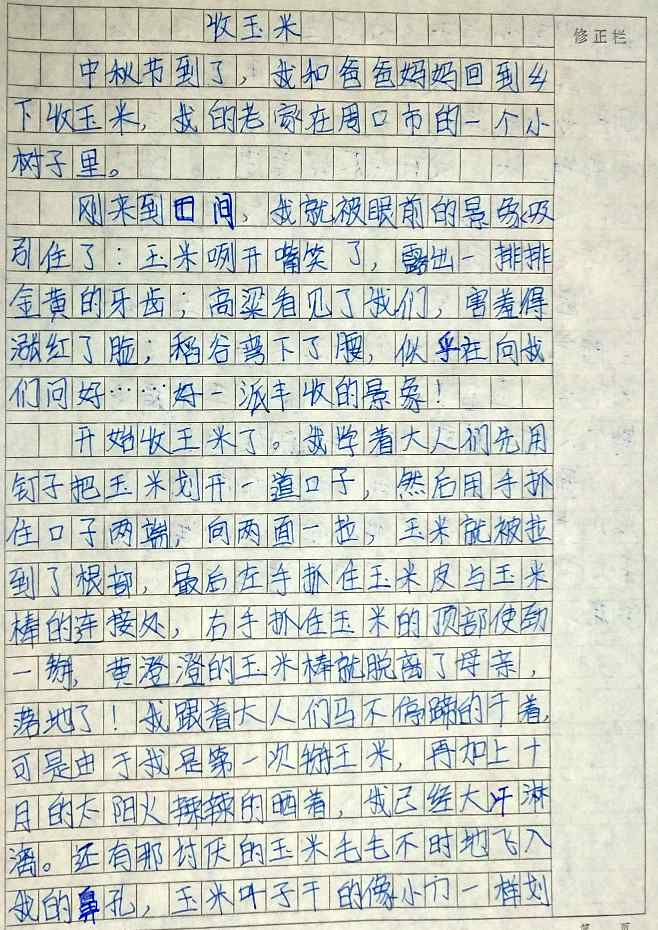 收玉米
修正栏
中秋节到了，我和爸爸妈妈回到乡
下收玉米，我的老家在周口市的一个小
树子里。
刚来到田间，我就被眼前的景象吸
引住了：玉米咧开嘴笑了，露出一排排
金黄的牙齿；高粱看见了我们，害羞得
涨红了脸；稻谷弯下了腰，似乎在向我
们问好……好一派丰收的景象！
开始收玉米了。我学着大人们先用
钉子把玉米划开一道口子，然后用手扒
住口子两端，向两面一拉，玉米就被拉
到了根部，最后左手扒住玉米皮与玉米
棒的连接处，右手扒住玉米的顶部使劲
一掰，黄澄澄的玉米棒就脱离了母亲，
落地了！我跟着大人们马不停蹄的干着，
可是由于我是第一次掰玉米，再加上十
月的太阳火辣辣的晒着，我已经大汗淋
漓。还有那讨厌的玉米毛毛不时地飞入
我的鼻孔，玉米叶子干的像小刀一样划
第 页